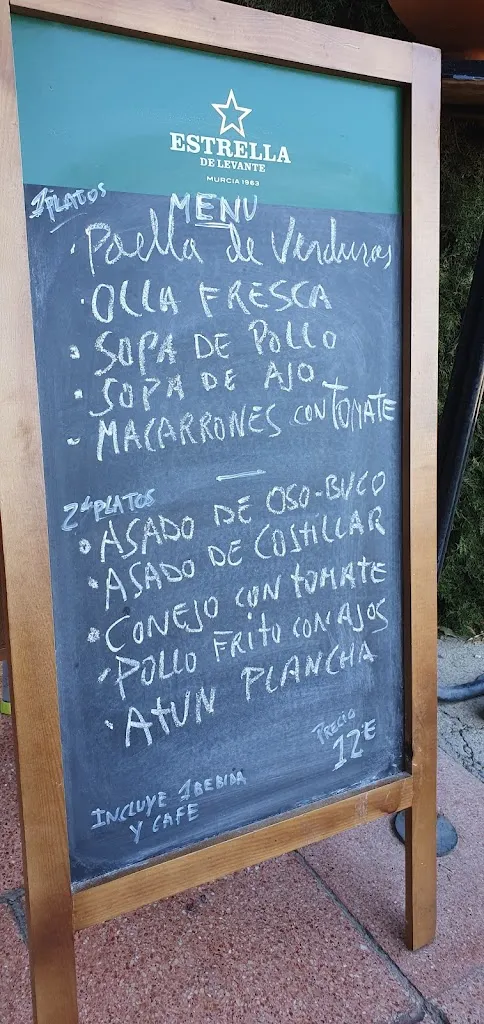 ESTRELLA
DE LEVANTE
MURCIA 1963
1ºPLATOS
MENU
· Paella de Verduras
· OLLA FRESCA
· SOPA DE POLLO
· SOPA DE AJO
- MACARRONES CON TOMATE
—
2ºPLATOS
· ASADO DE OSO-BUCO
· ASADO DE COSTILLAR
· CONEJO CON TOMATE
· POLLO FRITO CON AJOS
· ATUN PLANCHA
PRECIO
12'E
INCLUYE 1 BEBIDA
Y CAFE